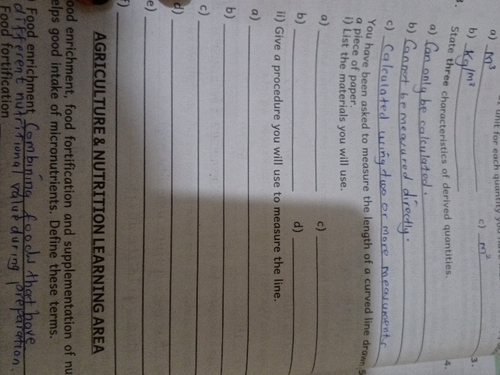 unit for each quantity
a) m³ c) m²
b) kg/m³
State three characteristics of derived quantities.
a) Can only be calculated.
b) Cannot be measured directly.
c) Calculated using two or more measurements
You have been asked to measure the length of a curved line drawn
a piece of paper.
i) List the materials you will use.
a) c)
b) d)
ii) Give a procedure you will use to measure the line.
a)
b)
c)
d)
e)
f)
AGRICULTURE & NUTRITION LEARNING AREA
ood enrichment, food fortification and supplementation of nu
elps good intake of micronutrients. Define these terms.
Food enrichment Combining foods that have
different nutritional value during preparation.
Food fortification
3.
4.
5